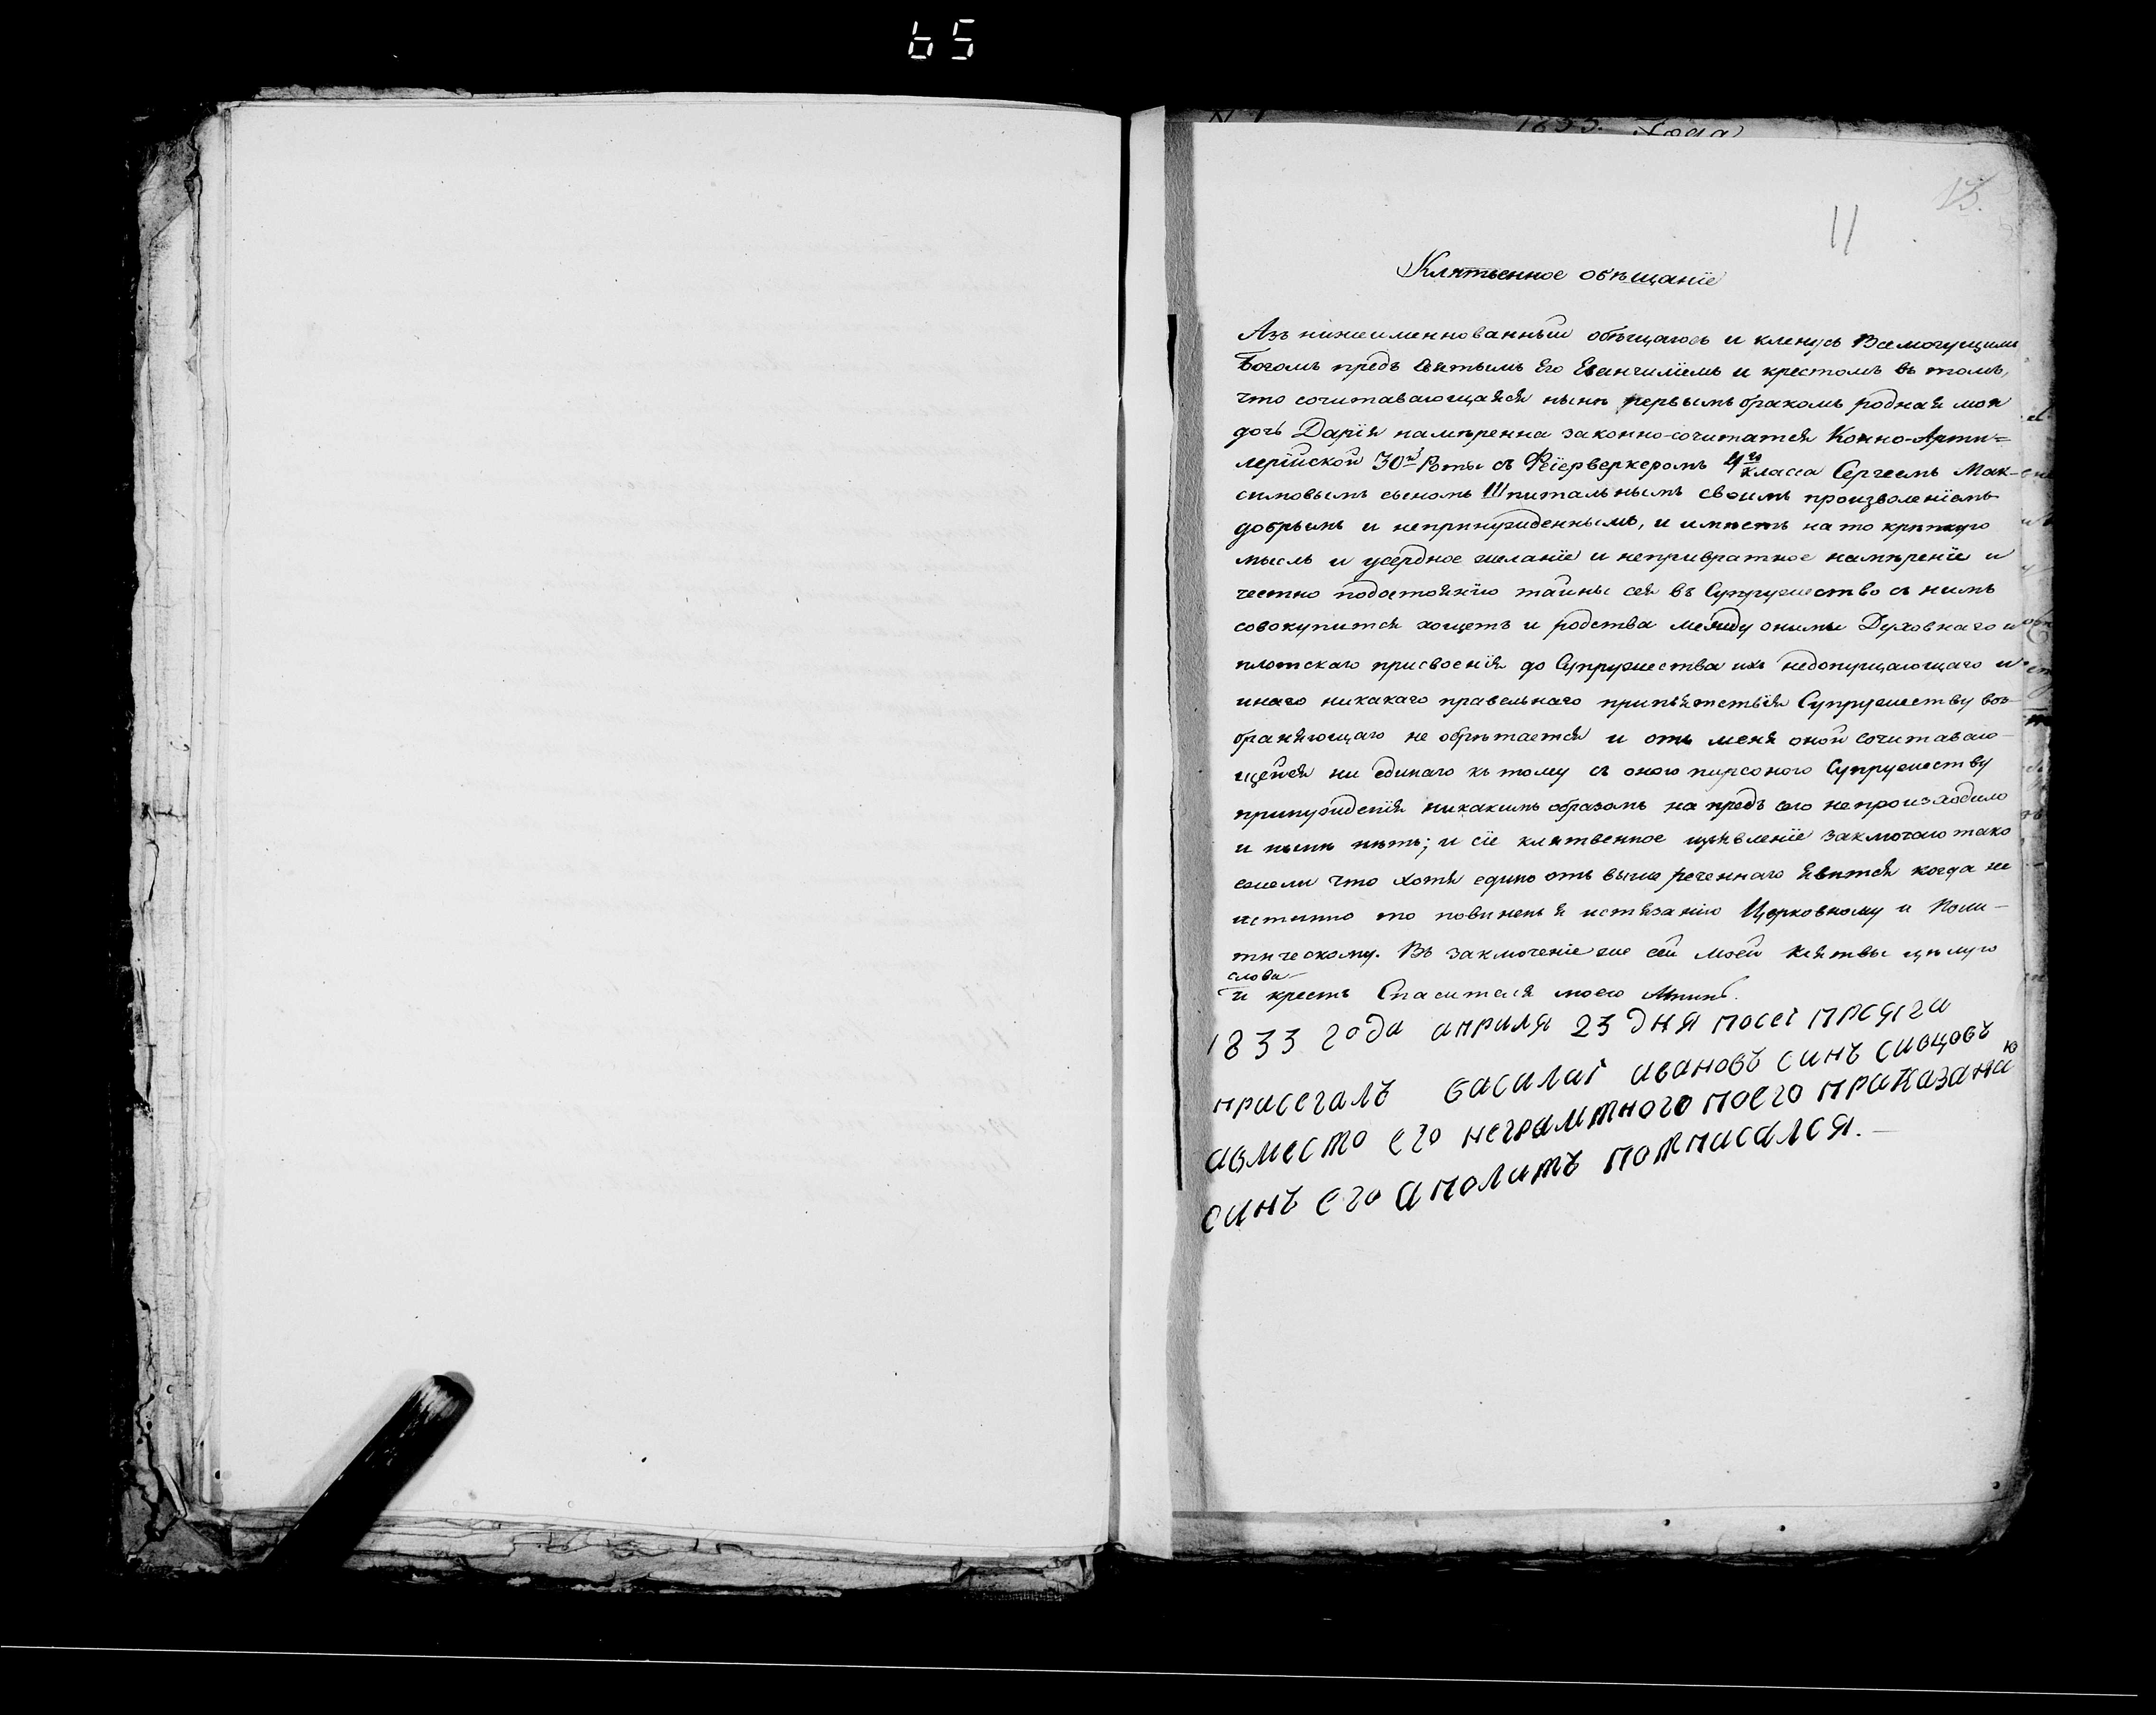 65
1833. Года
13.
11
Клятвенное обѣщаніе
Азъ нижеименнованный обѣщаюсь и кленусь Всемогущимъ
Богомъ предъ Святымъ Его Евангиліемъ и крестомъ въ томъ,
что сочитавающаяся нынѣ первымъ бракомъ родная моя
дочь Дарія намѣренна законно-сочитатся Конно-Арти=
лерійской 30й Роты съ Феіерверкеромъ 4го класса Сергеемъ Мак-
симовымъ сыномъ Шпитальнымъ своимъ произволеніемъ
добрымъ и непринужденнымъ, и имѣетъ на то крѣпкую
мысль и усердное желаніе и непривратное намѣреніе и
честно подостоянію тайны сея въ Супружество съ нимъ
совокупится хощетъ и родства между оными Духовнаго и
плотскаго присвоенія до Супружества ихъ недопущающаго и
инаго никакаго правельнаго припятствія Супружеству воз-
браняющаго не обрѣтается и отъ меня оной сочитаваю-
щейся ни единаго къ тому съ оною персоною Супружеству
принужденія никакимъ образомъ на предъ сего непроисходило
и нынѣ нѣтъ; и сіе клятвенное изявленіе заключаю тако
ежели что хотя едино отъ выше реченнаго явится когда не
истинно то повиненъ я истязанію Церковному и Поли-
тическому. Въ заключеніе же сей моей клятвы цѣлую
слова
и крестъ Спасителя моего Аминь.
1833 года априля 23 дня посеі прсяга
присегалъ василиі ивановъ синъ сивцовъ
авместо его неграмтного поего приказанаю
синъ его аполитъ потписался.